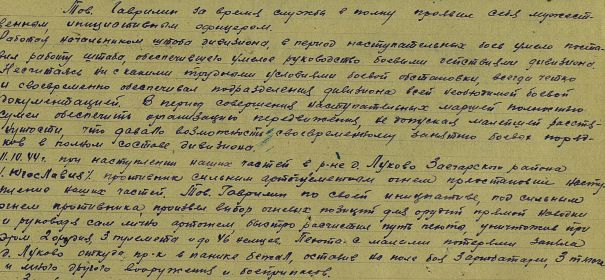 Тов. Гаврилин за время службы в полку проявил себя мужест-
венным инициативным офицером.
Работая начальником штаба дивизиона, в период наступательных боев умело поста-
вил работу штаба, обеспечившего умелое руководство боевыми действиями дивизиона.
Несчитаясь ни с какими трудными условиями боевой обстановки, всегда четко
и своевременно обеспечивал подразделения дивизиона всей необходимой боевой
документацией. В период совершения наступательных маршей полностью
сумел обеспечить организацию передвижения, не допуская малейшей растя-
нутости, что давало возможность своевременному занятию боевых поряд-
ков в полном составе дивизиона.
11.10.44г. при наступлении наших частей в р-не д. Луково Заечарского района
/Югославия/. противник сильным артогнем приостановил насту-
пление наших частей. Тов. Гаврилин по своей инициативе, под сильным
огнем противника, произвел выбор огневых позиций для орудий прямой наводки
и руководя сам лично артогнем быстро расчистил путь пехоте, уничтожив при
этом 2 орудия 3 пулемета и до 46 немцев. Пехота с малыми потерями заняла
д. Луково откуда пр-к в панике бежал, оставив на поле боя
и много другого вооружения и боеприпасов.